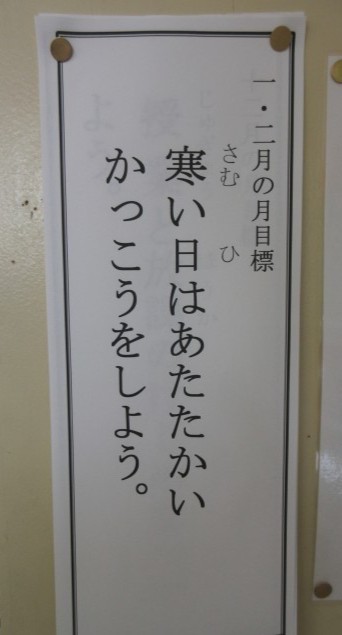 一・二月の月目標
さむ ひ
寒い日はあたたかい
かっこうをしよう。